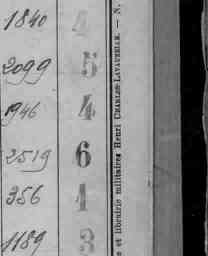 1840 4
2099 5
1946 4
2519 6
356 1
1189 3
e et librairie militaires Henri CHARLES-LAVAUZELLE. — N.